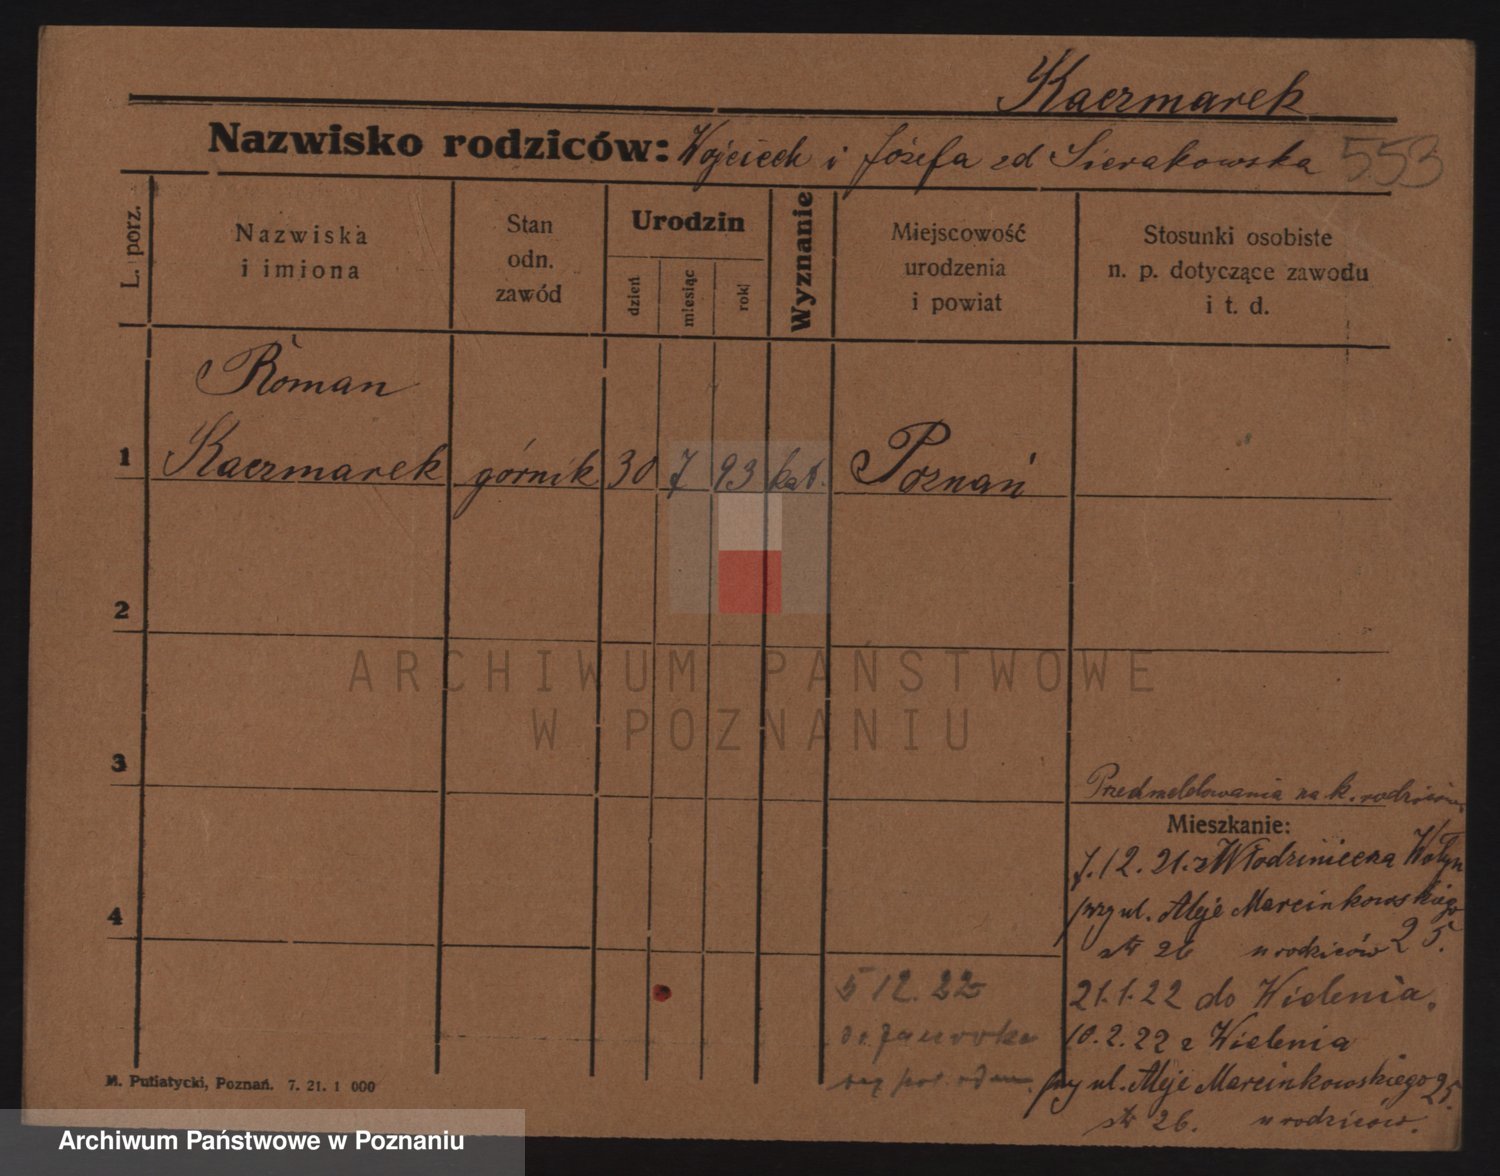 Kaczmarek
Nazwisko rodziców: Wojciech i Józefa zd Sierakowska 553
L. porz.
Nazwiska
i imiona
Stan
odn.
zawód
Urodzin
dzień
miesiąc
rok
Wyznanie
Miejscowość
urodzenia
i powiat
Stosunki osobiste
n. p. dotyczące zawodu
i t. d.
Roman
1 Kaczmarek górnik 30 7 93 kat. Poznań
2
ARCHIWUM PAŃSTWOWE
W POZNANIU
3
Przedmeldowania na k. rodziców
Mieszkanie:
7.12.21. z Włodzimierza Wołyń
przy ul. Aleje Marcinkowskiego
25.
26 u rodziców
4
21.1.22 do Wielenia.
10.2.22 z Wielenia
przy ul. Aleje Marcinkowskiego 25.
26. u rodziców.
5 12. 22
M. Putiatycki, Poznań. 7. 21. 1 000
Archiwum Państwowe w Poznaniu